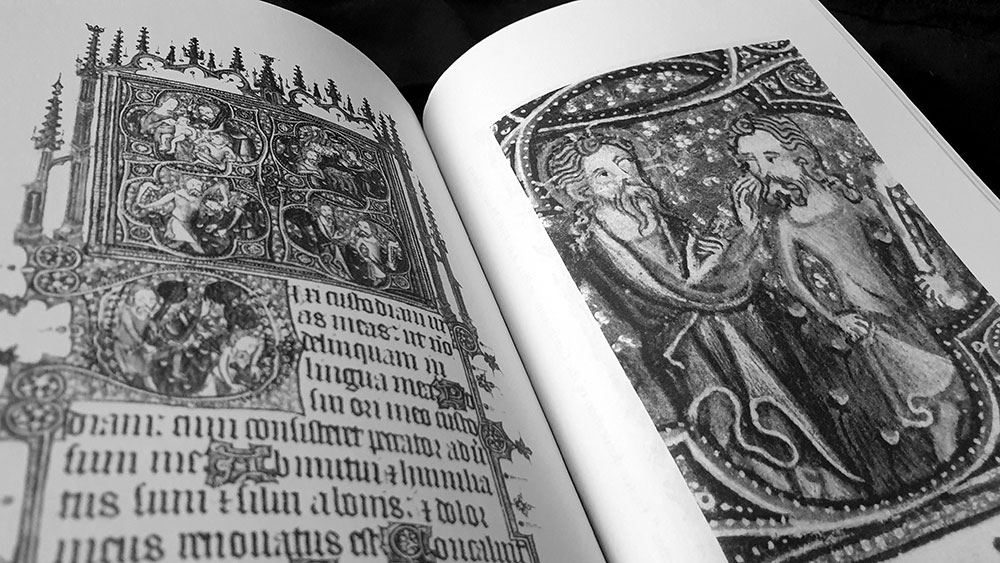 ixi custodiam ui
as meas: ut no
delinquam in
lingua mea Po
sui ori meo custo
diam: cum consisteret peccator adu
sum me Obmutui ⁊ humilia
tus sum ⁊ silui a bonis: ⁊ dolor
meus renouatus est Concaluit